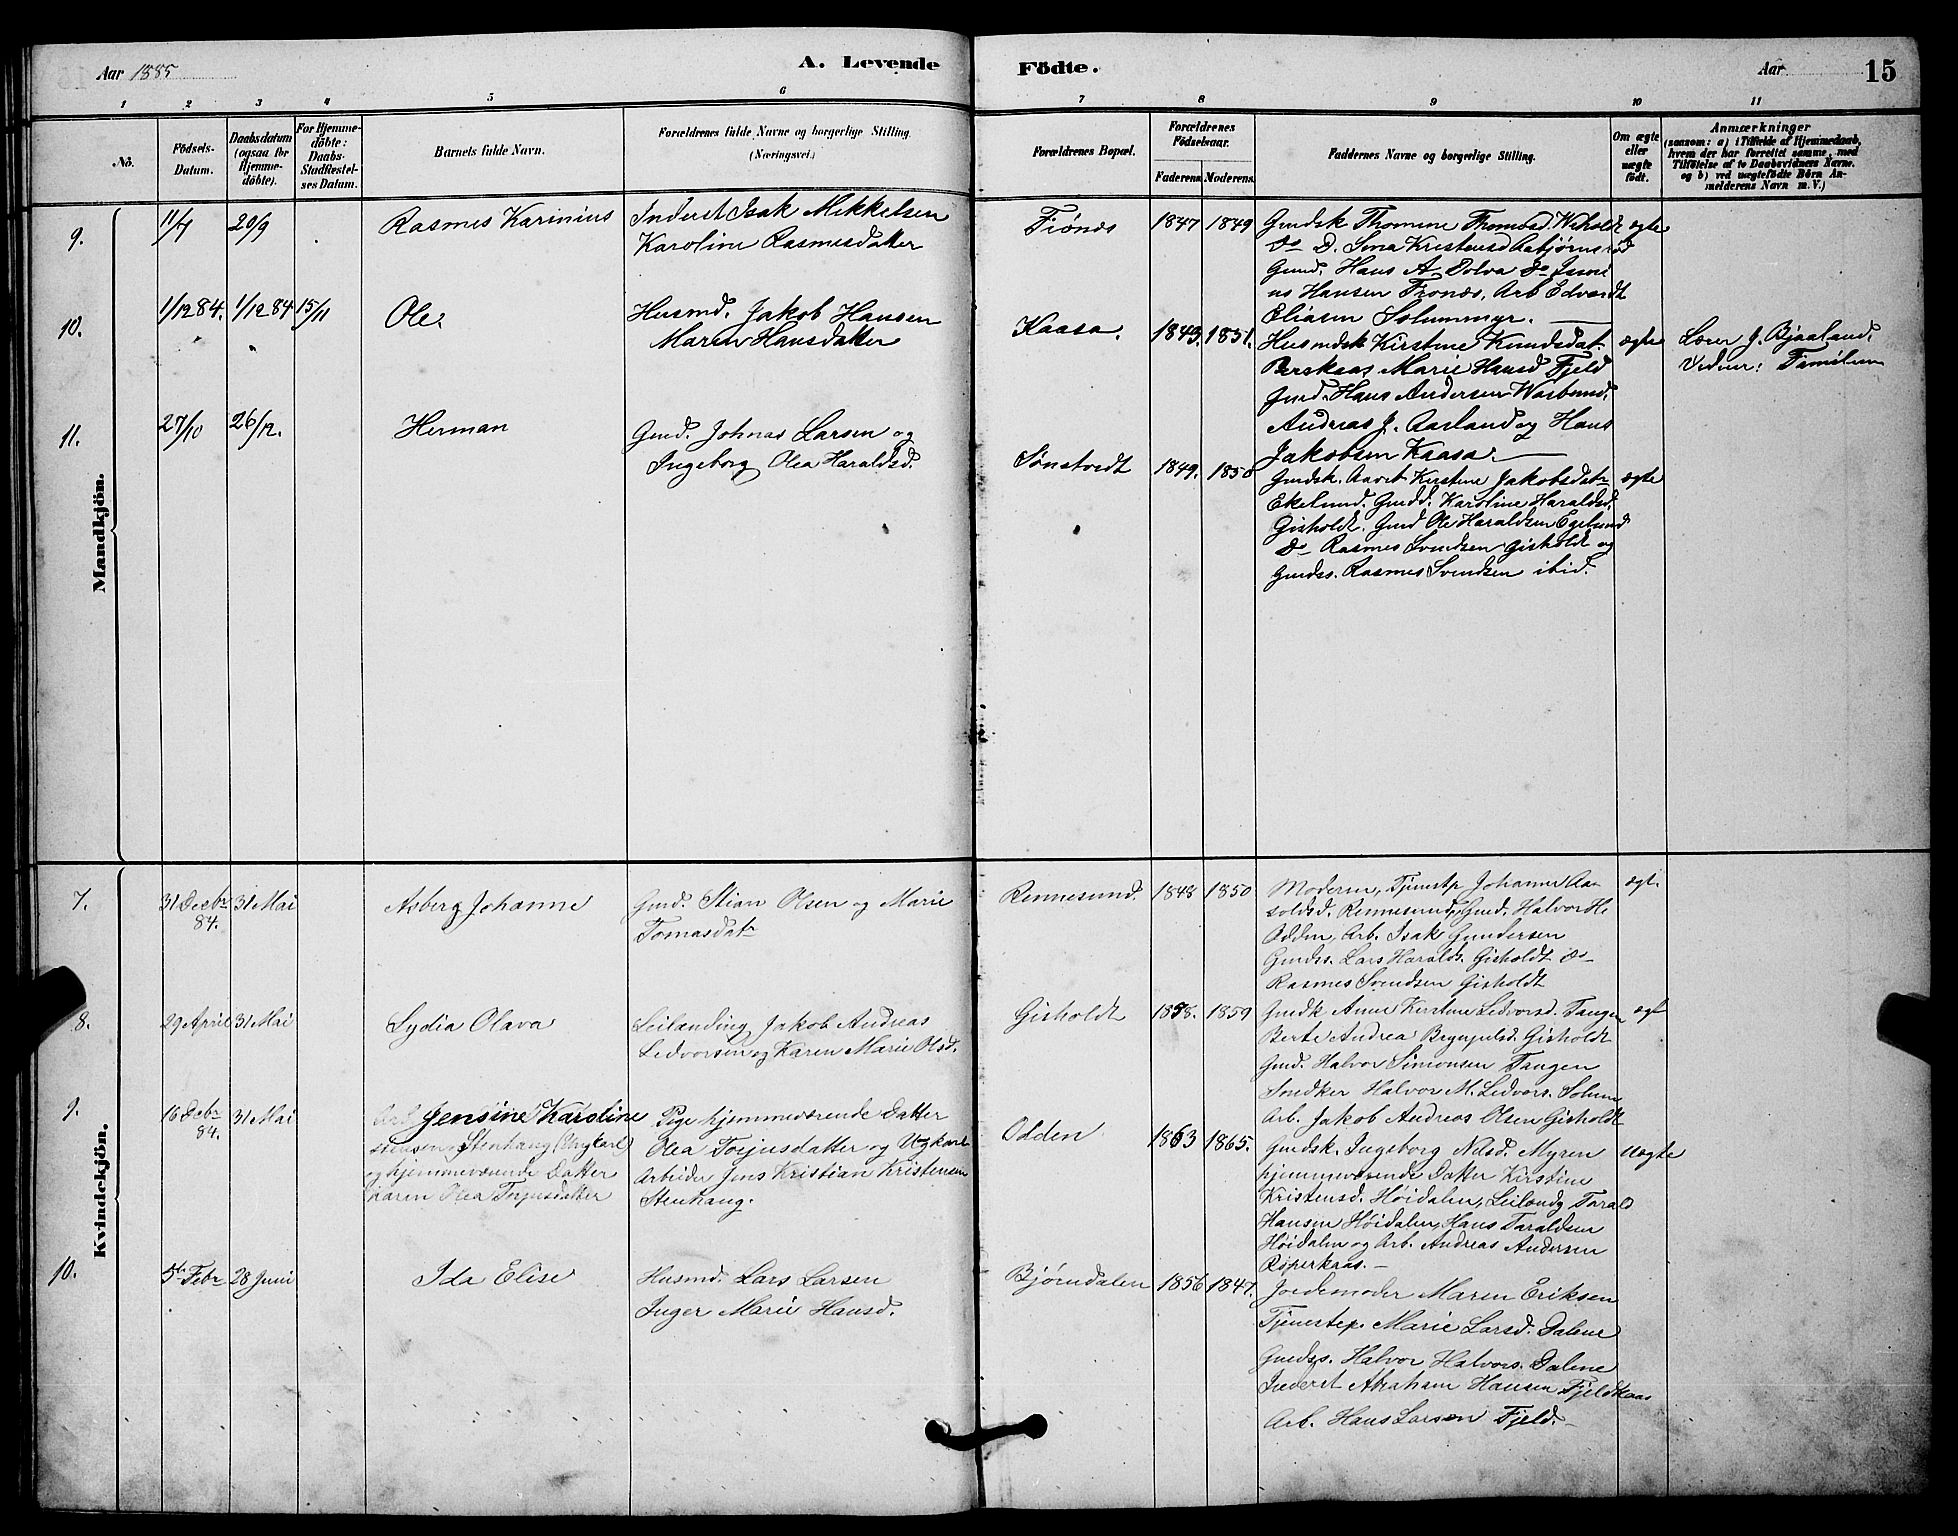 Aar 1885
A. Levende
Födte.
Aar
15
1 2 3 4 5 6 7 8 9 10 11
No.
Födsels-
Datum.
Daabsdatum
(ogsaa for
Hjemme-
döbte).
For Hjemme-
döbte:
Daabs-
Stadfæstel-
ses Datum.
Barnets fulde Navn.
Forældrenes fulde Navne og borgerlige Stilling
(Næringsvei.)
Forældrenes Bopæl.
Forældrenes
Födselsaar.
Faderens. Moderens.
Faddernes Navne og borgerlige Stilling.
Om ægte
eller
uægte
födt.
Anmærkninger
(saasom: a) i Tilfælde af Hjemmedaab,
hvem der har forrettet samme, med
Tilföielse af to Daabsvidners Navne.
og b) ved uægtefödte Börn An-
melderens Navn m. V.)
Mandkjön.
9.
11/4
20/9
Rasmus Karinius
Inderst Isak Mikkelsen
Karoline Rasmusdatter
Frönes
1847 1849
Gmdsk Thomine Thomasd. Wiholdt
Do D. Sina Kristensd Aabjørnsrød
Gmd. Hans A. Dolva Do
us Hansen Frones, Arb Edvardt
Eliasen Solummyr.
ægte
10.
1/12 84.
1/12 84
15/11
Ole.
Husmd. Jakob Hansen
Maren Hansdatter
Kaasa.
1843. 1851.
Husmdsk Kirstine Knudsdat.
Marie Hansd Fjeld
Gmd. Hans Andersen
Andreas J. Aarland og Hans
Jakobsen Kaasa.
ægte
Lærer J. Bjaaland.
Vidner: Familien
11.
27/10
26/12.
Herman
Gmd. Johnas Larsen og
Ingeborg Olea Haraldsd.
Sönstvedt
1849. 1850
Gmdsk. Kirstine Jakobsdatr
Ekelund. Gmdd. Karoline Haraldsd.
Gisholdt. Gmd Ole Haraldsen Egelund
Do Rasmus Svendsen Gisholdt og
Gmdss. Rasmus Svendsen ibid.
ægte
Kvindekjön.
7.
31 Decbr
84.
31 Mai
Asberg Johanne
Gmd. Stian Olsen og Marie
Tomasdatr
Rennesund.
1848 1850
Moderen, Tjenestp Johanne Aa
soldsd. Rennesund, Gmd. Halvor H.
Odden, Arb. Isak Gundersen
Gmdss. Lars Haralds. Gisholdt Do
Rasmus Svendsen Gisholdt
ægt.
8.
29 April
31 Mai
Lydia Olava
Leilænding Jakob Andreas
Ledvorsen og Karen Marie Olsd.
Gisholdt
1858. 1859
Gmdk Anne Kirstine Ledvorsd. Tangen
Berte Andrea Brynjulsd. Gisholdt
Gmd. Halvor Simonsen Tangen
Halvor M. Ledvors. Solum
Arb. Jakob Andreas Olsen Gisholdt
ægt
9.
16 Decbr
84.
31 Mai
Jensine Karoline
Stenhaug (Ungkarl)
og hjemmeværende Datter
Karen Olea Torjusdatter
Pige hjemmeværende Datter
Olea Torjusdatter og Ugkarl
Arbeider Jens Kristian Kristensen
Stenhaug.
Odden
1863 1865.
Gmdsk. Ingeborg Nilsd. Myren
hjemmeværende Datter Kirstine
Kristensd. Höidalen, Leilændg Tarald
Hansen Höidalen, Hans Taraldsen
Höidalen og Arb. Andreas Andersen
Röperkaas. —
Uægte
10.
5te Febr
28 Juni
Ida Elise
Husmd. Lars Larsen
Inger Marie Hansd.
Bjørndalen
1856 1847.
Jordemoder Maren Eriksen
Tjenestep. Marie Larsd. Dalene
Gmdss. Halvor Halvors. Dalene
Inderst Abraham Hansen Fjeldkaas
Arb. Hans Larsen Fjeld. —